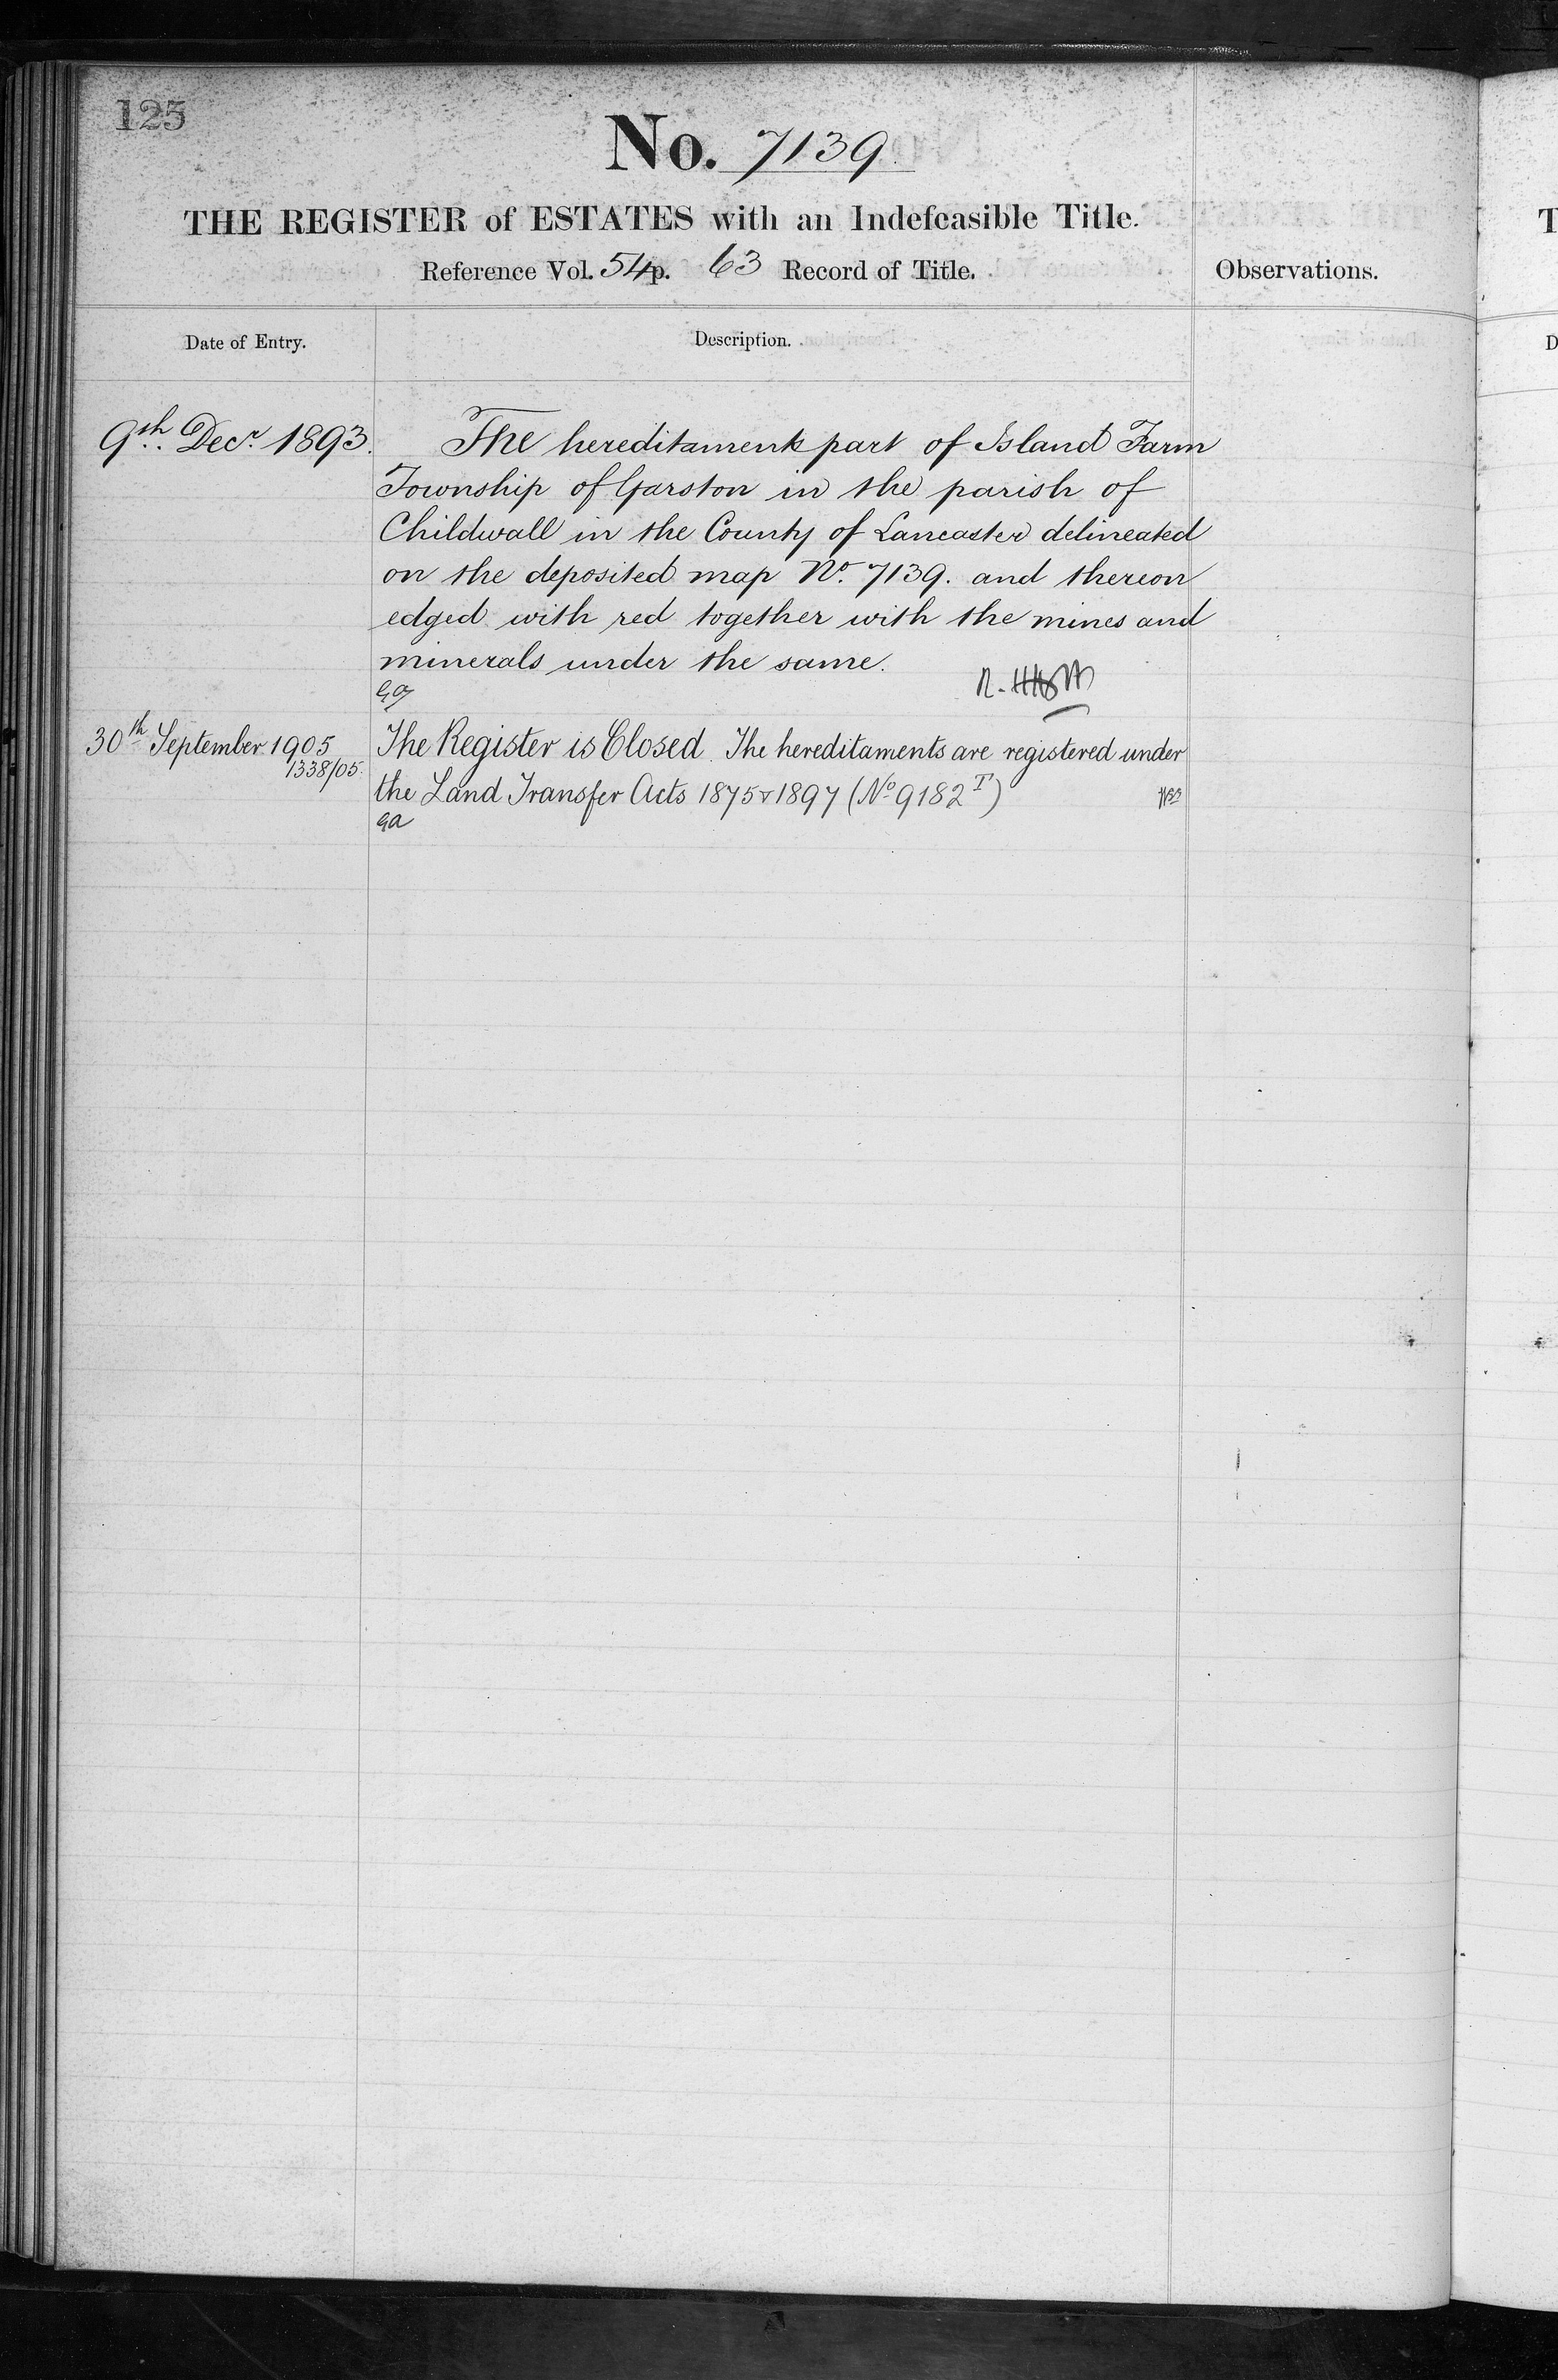 125
No. 7139.
THE REGISTER of ESTATES with an Indefeasible Title.
Reference Vol. 54 p. 63 Record of Title.
Observations.
Date of Entry.
Description.
9th. Decr. 1893.
The hereditaments part of Island Farm
Township of Garston in the parish of
Childwall in the County of Lancaster delineated
on the deposited map No. 7139. and thereon
edged with red together with the mines and
minerals under the same.
30th September 1905
1338/05.
The Register is Closed. The hereditaments are registered under
the Land Transfer Acts 1875 & 1897 (No 9182 T)
T
D